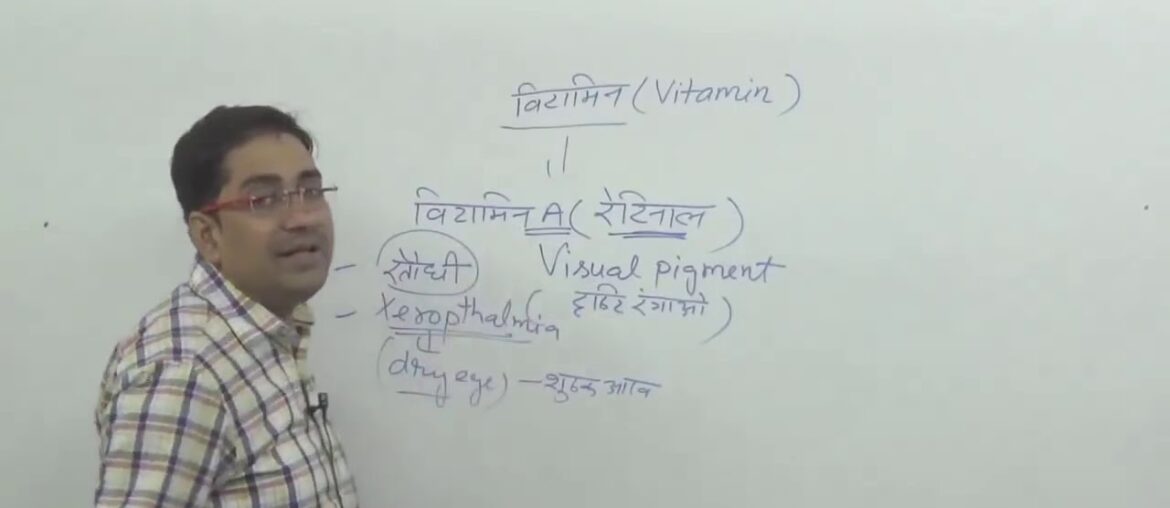 विटामिन (Vitamin)
विटामिन A (रेटिनाल)
- रतौंधी Visual pigment
- Xeropthalmia (दृष्टि रंगाओ)
(dry eye) - शुष्क आँख